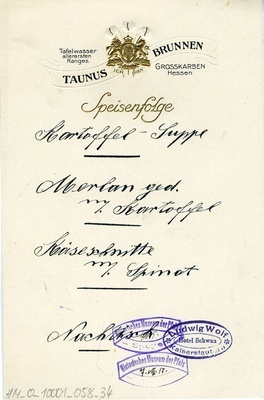 Tafelwasser
allerersten
Ranges.
TAUNUS BRUNNEN
GROSSKARBEN
Hessen
Speisenfolge
Kartoffel-Suppe
Merlan ged.
m/ Kartoffel
Käseschnitte
m/ Spinat
Nachtisch
Historisches Museum der Pfalz
Ludwig Wolf
Hotel Schwan
Kaiserslautern
Historisches Museum der Pfalz
HM_0_10001_058_34